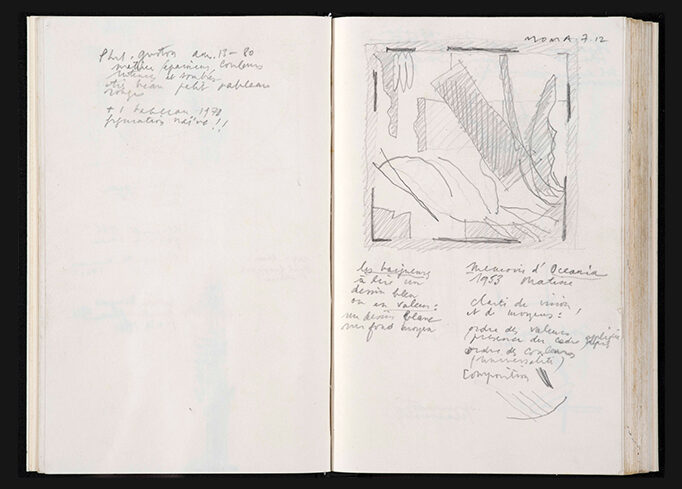 Phil. guston am. 13-80
matière épaisse, couleurs
intenses et sombres
très beau petit tableau
rouge
+ 1 tableau 1978
figuration naïve !!
MOMA 7.12
les baigneurs
dessin bleu
ou en valeur :
un dessin blanc
sur fond moyen
Memoire d'Oceania
1953 Matisse
clarté de vision !
et de moyens :
ordre des valeurs
(présence du cadre
ordre des couleurs
(universalité)
Composition